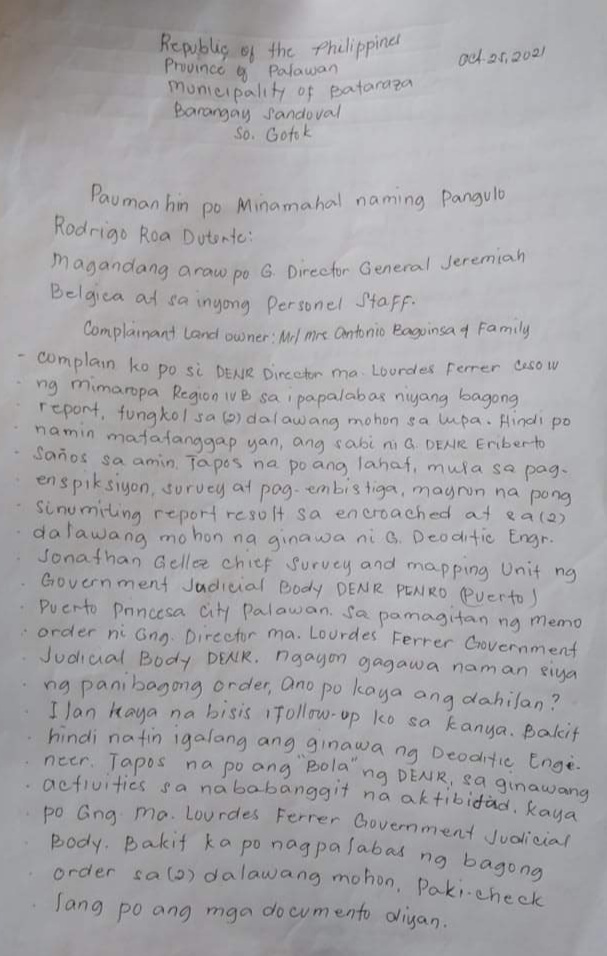 Republic of the Philippines
Oct. 25, 2021
Province of Palawan
Municipality of Bataraza
Barangay Sandoval
So. Gotok
Paumanhin po Minamahal naming Pangulo
Rodrigo Roa Duterte:
Magandang araw po G. Director General Jeremiah
Belgica at sa inyong Personel Staff.
Complainant Land owner: Mr/ Mrs Antonio Baguinsa & Family
- Complain ko po si DENR Director ma. Lourdes Ferrer
ng mimaropa Region IV B sa ipapalabas niyang bagong
report, tungkol sa (2) dalawang mohon sa lupa. Hindi po
namin matatanggap yan, ang sabi ni G. DENR Eriberto
Saños sa amin. Tapos na po ang lahat, mula sa pag-
enspiksiyon, survey at pag-embistiga, mayron na pong
sinumiting report result sa encroached at sa (2)
dalawang mohon na ginawa ni G. Deoditic Engr.
Jonathan Gellez chief Survey and mapping Unit ng
Government Judicial Body DENR PENRO (Puerto)
Puerto Princesa City Palawan. Sa pamagitan ng memo
order ni Gng. Director ma. Lourdes Ferrer Government
Judicial Body DENR. ngayon gagawa naman siya
ng panibagong order, ano po kaya ang dahilan?
Ilan kaya na bisis ifollow-up ko sa kanya. Bakit
hindi natin igalang ang ginawa ng Deoditic Engi-
neer. Tapos na po ang "Bola" ng DENR, sa ginawang
activities sa nababanggit na aktibidad. kaya
po Gng. Ma. Lourdes Ferrer Government Judicial
Body. Bakit ka po nagpalabas ng bagong
order sa (2) dalawang mohon. Paki-check
lang po ang mga documento diyan.